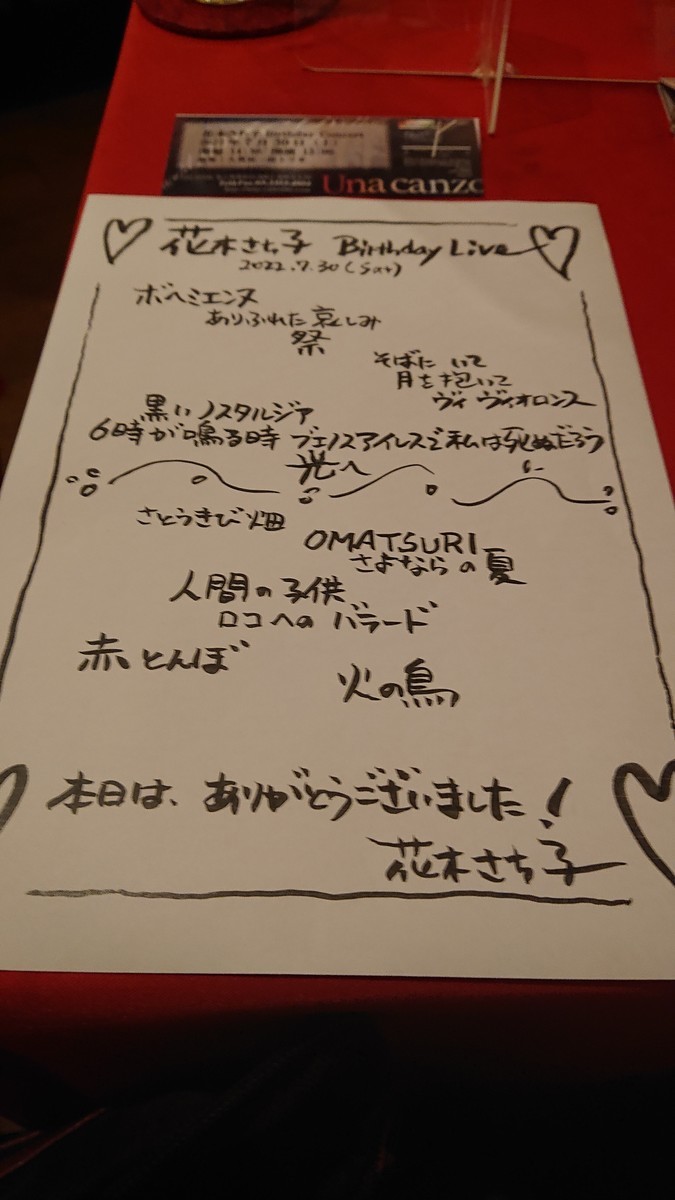 Birthday Concert
Una canzo
花木さち子 Birthday Live
2022.7.30(Sat)
ボヘミエンヌ
ありふれた哀しみ
祭
そばにいて
月を抱いて
ヴィ ヴィオロンス
黒いノスタルジア
6時が鳴る時 ブエノスアイレスで私は死ぬだろう
光へ
さとうきび畑
OMATSURI
さよならの夏
人間の子供
ロコへのバラード
赤とんぼ
火の鳥
本日は、ありがとうございました!
花木さち子